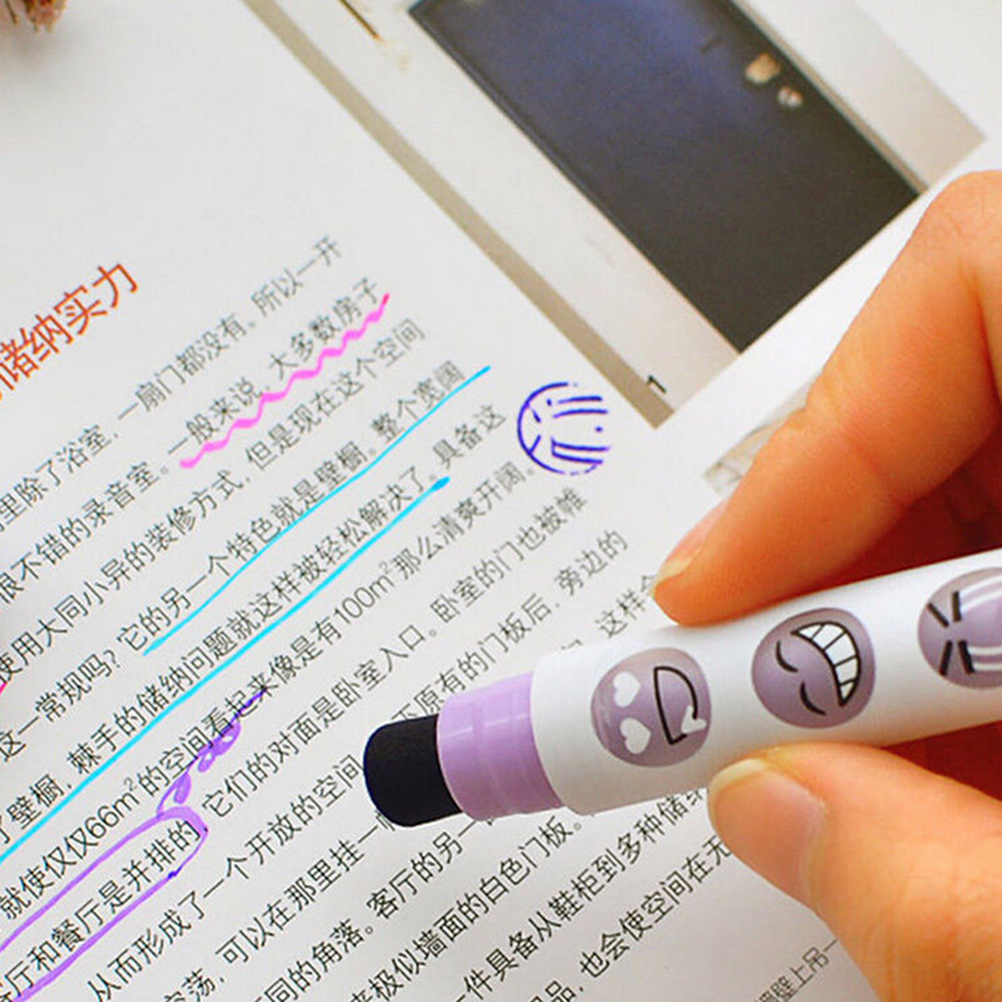 储纳实力
里除了浴室，一扇门都没有。所以一开
很不错的录音室。一般来说，大多数房子
使用大同小异的装修方式，但是现在这个空间
这一常规吗？它的另一个特色就是壁橱。整个宽阔
了壁橱，棘手的储纳问题就这样被轻松解决了。具备这
就使仅仅66m²的空间看起来像是有100m²那么清爽开阔。
厅和餐厅是并排的，它们的对面是卧室入口。卧室的门也被帷
从而形成了一个开放的空间 不原有的门板后，旁边的
荡，可以在那里挂一 这样
同的角落。客厅的另一
来极似墙面的白色门板。
件具备从鞋柜到多种储纳
品，也会使空间在无
壁上吊一
1